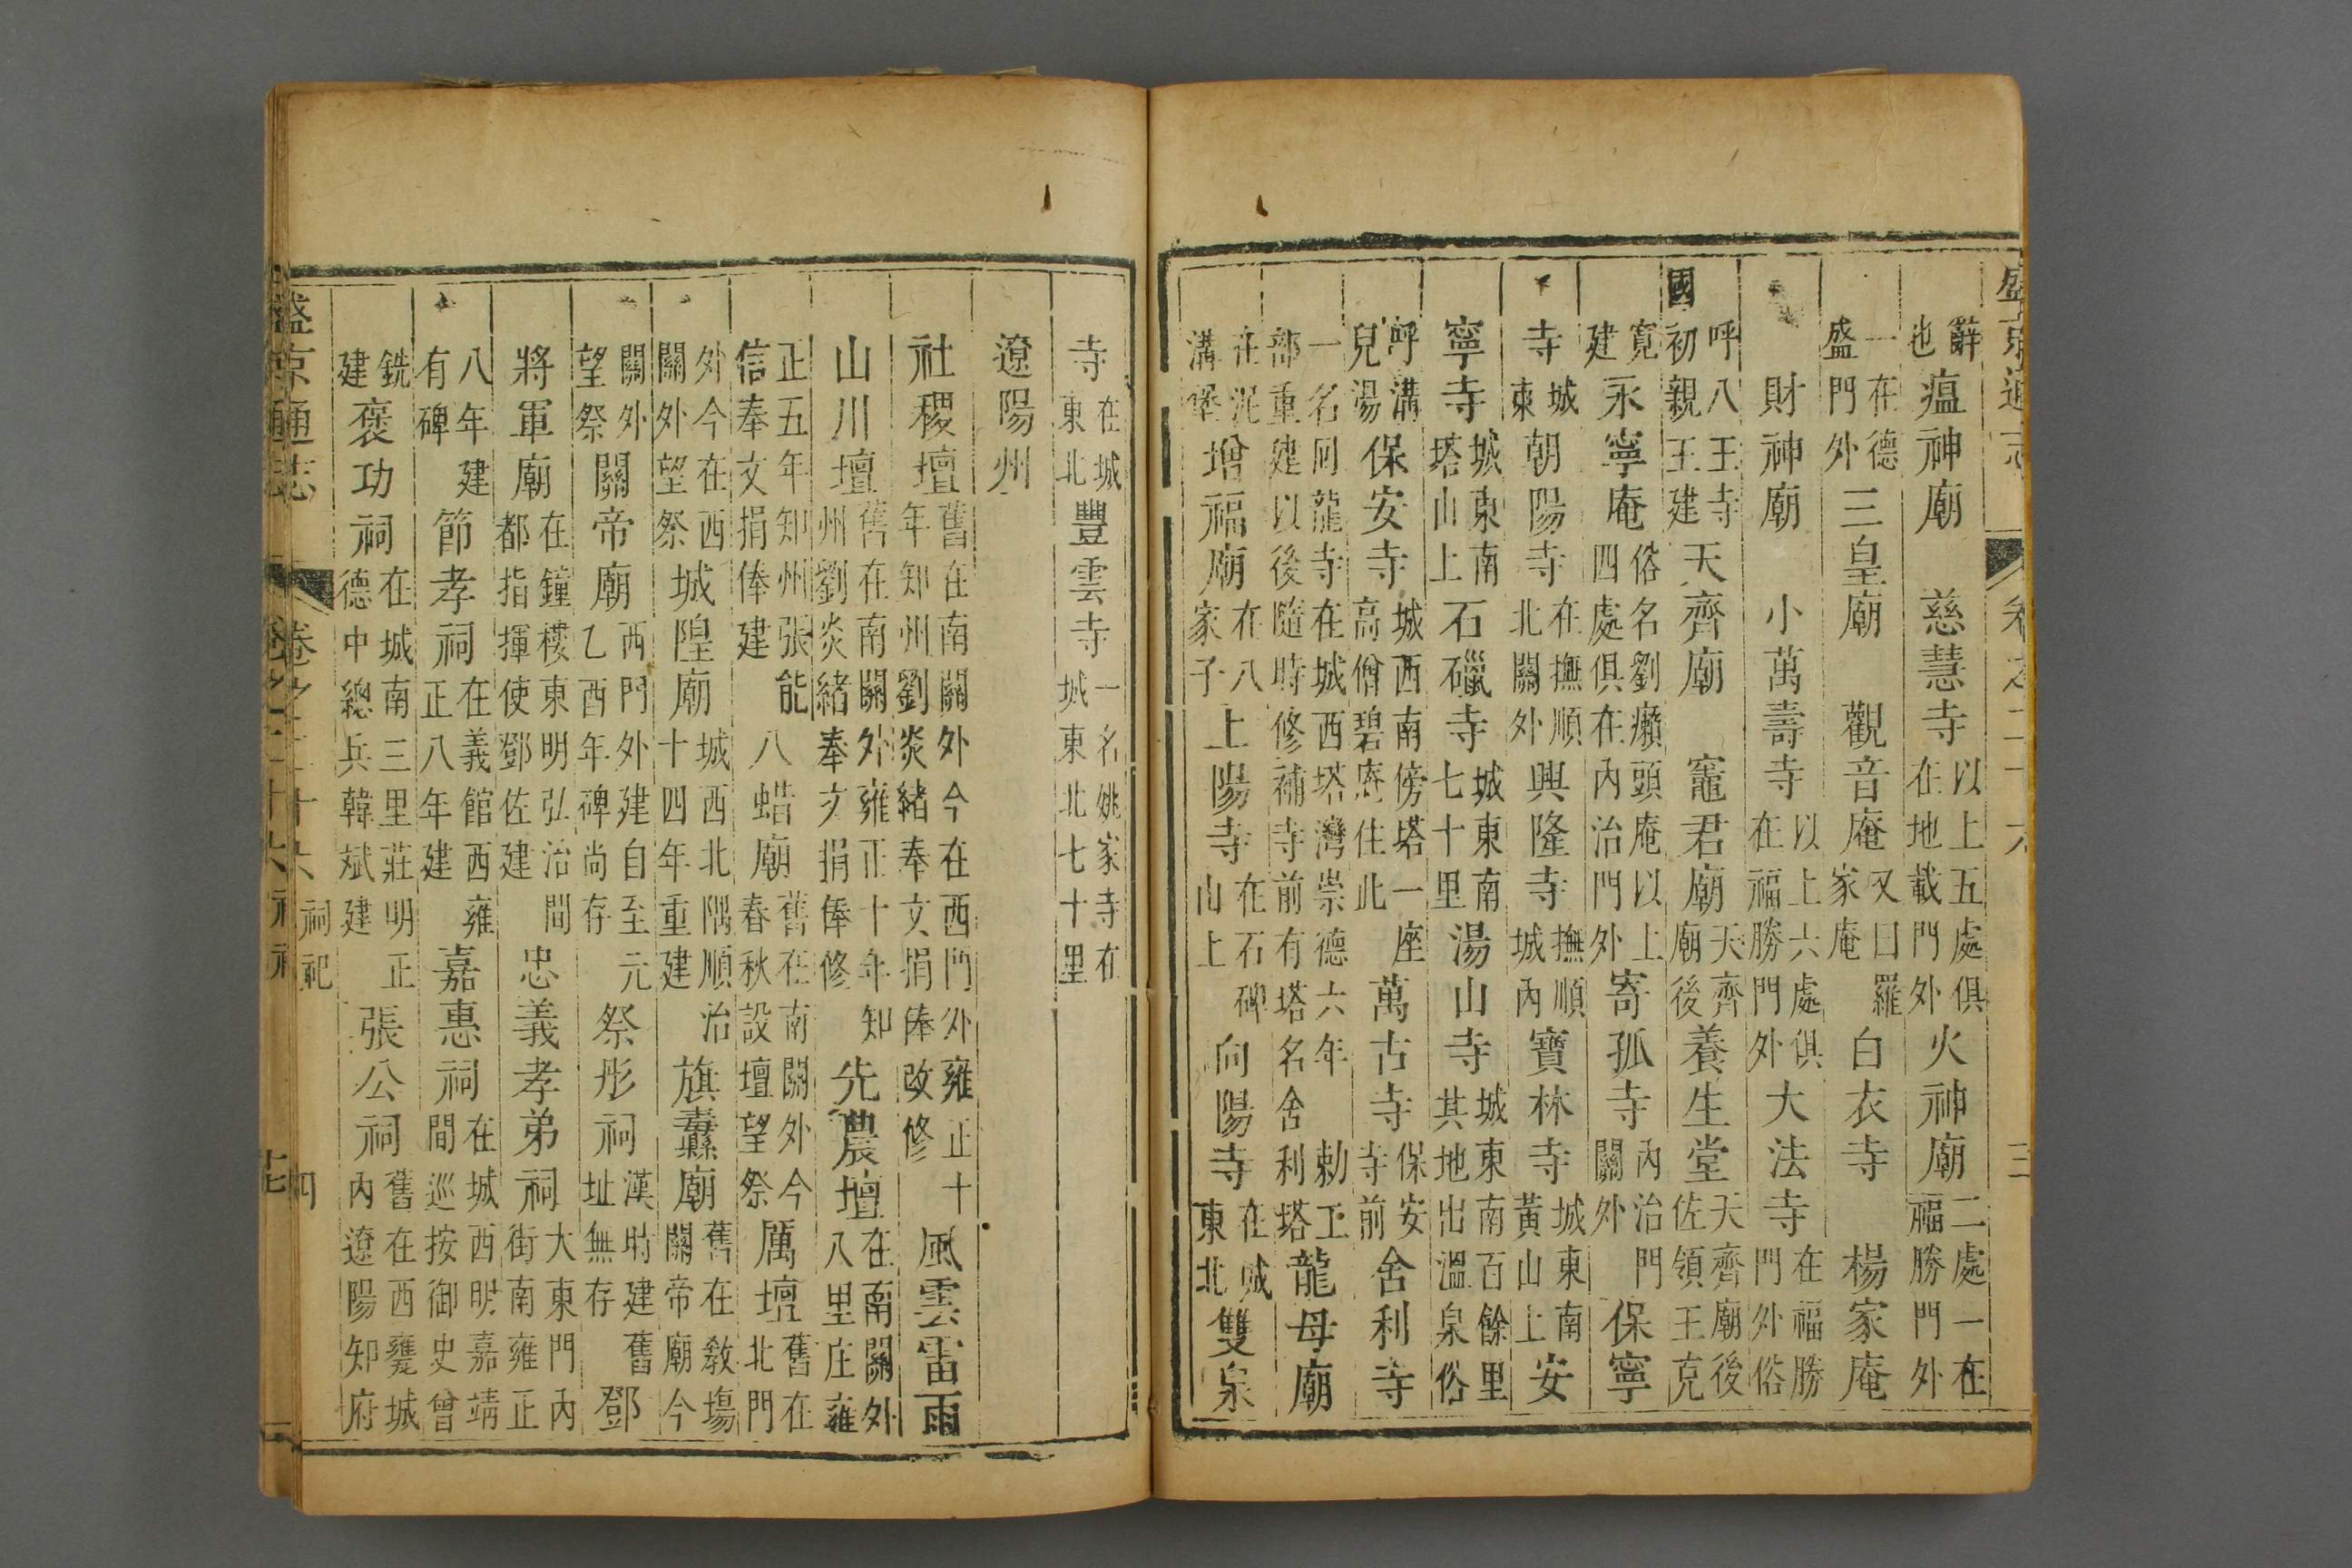 盛京通志 卷之二十六 三
辭也瘟神廟 慈慧寺以上五處俱在地載門外火神廟二處一在福勝門外
一在德盛門外三皇廟 觀音庵又曰羅家庵白衣寺 楊家庵
財神廟 小萬壽寺以上六處俱在福勝門外大法寺在福勝門外俗
呼八王寺國初親王建天齊廟 竈君廟天齊廟後養生堂天齊廟後佐領王克
寬建永寧庵俗名劉癩頭庵以上四處俱在內治門外寄孤寺內治門關外保寧
寺城東朝陽寺在撫順北關外興隆寺撫順城內寶林寺城東南黃山上安
寧寺城東南塔山上石寺城東南七十里湯山寺城東南百餘里其地出溫泉俗
呼溝兒湯保安寺城西南傍塔一座高僧碧庵住此萬古寺保安寺前舍利寺
一名回龍寺在城西塔灣崇德六年勅工部重建以後隨時修補寺前有塔名舍利塔龍母廟
在泥溝增福廟在八家子上陽寺在石碑山上向陽寺在城東北雙泉
寺在城東北豐雲寺一名姚家寺在城東北七十里
遼陽州
社稷壇舊在南關外今在西門外雍正十年知州劉炎緒奉文捐俸改修風雲雷雨
山川壇舊在南關外雍正十年知州劉炎緒奉文捐俸修先農壇在南關外八里庄雍
正五年知州張能信奉文捐俸建八蜡廟舊在南關外今春秋設壇望祭厲壇舊在北門
外今在西關外望祭城隍廟城西北隅順治十四年重建旗纛廟舊在敎塲關帝廟今
關外望祭關帝廟西門外建自至元乙酉年碑尚存祭彤祠漢時建舊址無存鄧
將軍廟在鐘樓東明弘治間都指揮使鄧佐建忠義孝弟祠大東門內街南雍正
八年建有碑節孝祠在義館西雍正八年建嘉惠祠在城西明嘉靖間巡按御史曾
銑建褒功祠在城南三里莊明正德中總兵韓斌建張公祠舊在西甕城內遼陽知府
盛京通志 卷之二十六 祠祀 四